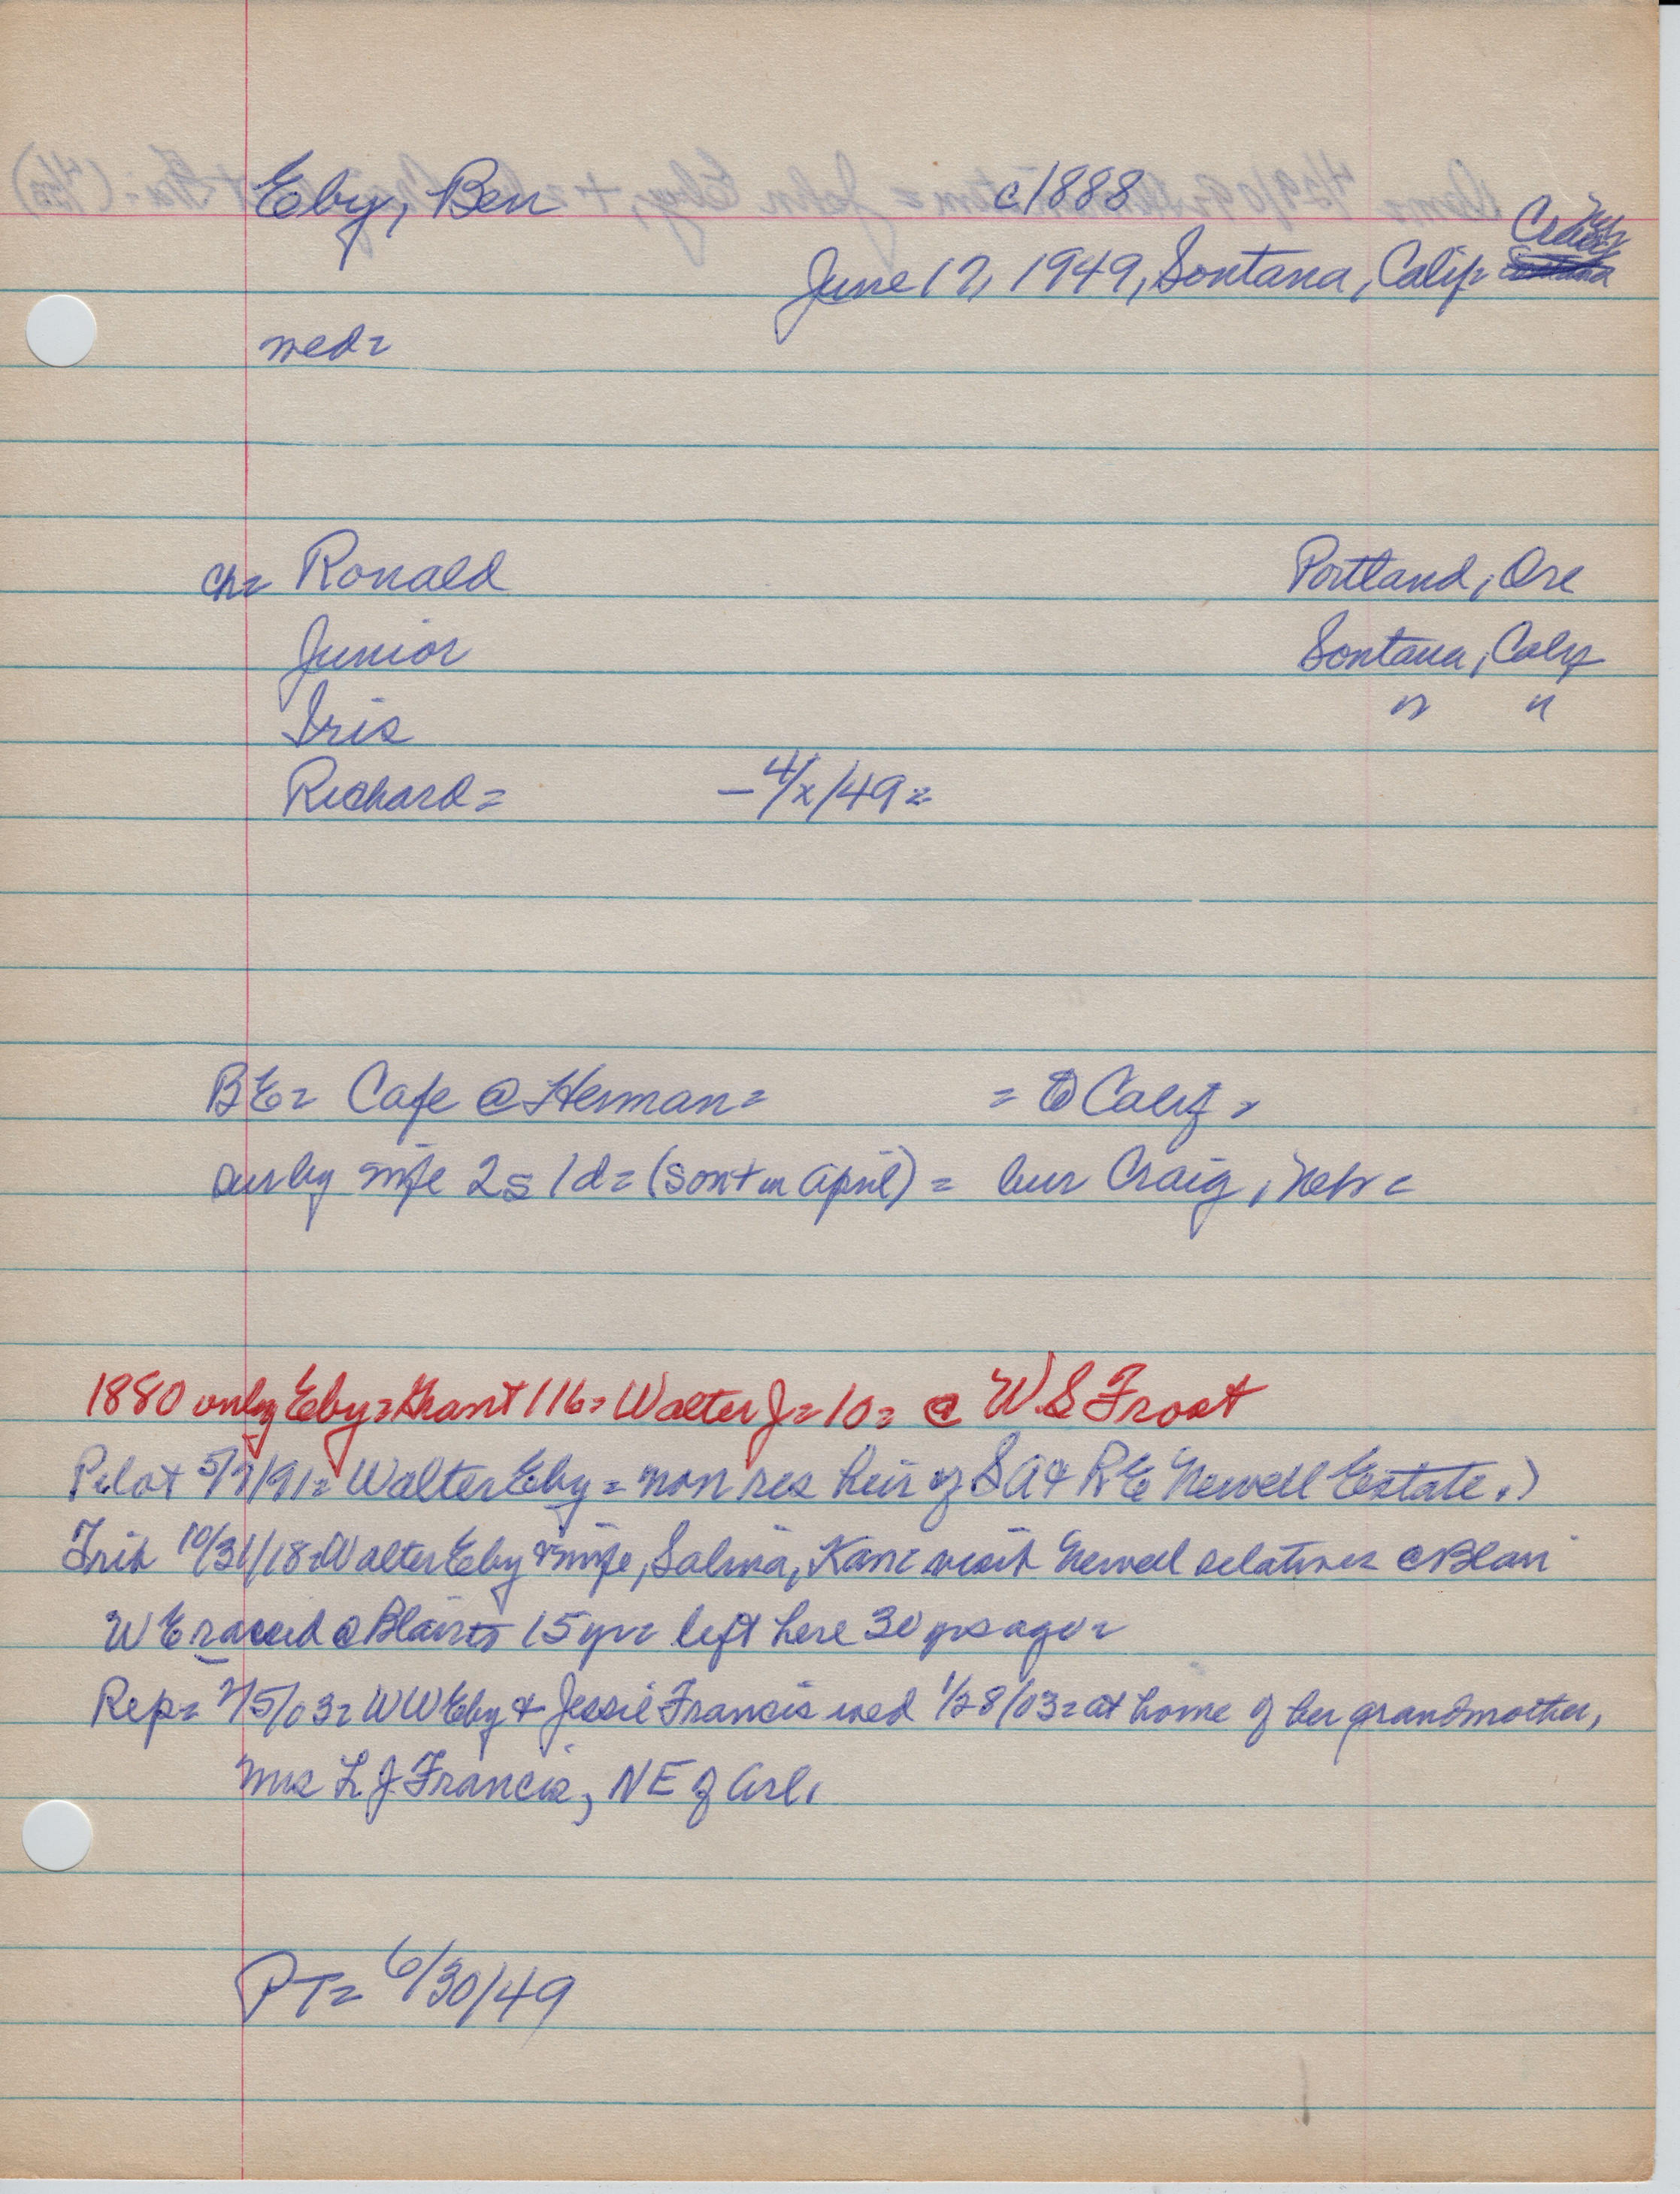 Eby, Ben c1888
June 17, 1949, Sontana, Calif=
wed=
ch= Ronald Portland, Ore
Junior Sontana, Calif
Iris " "
Richard= -4/x/49=
BE= Cafe @ Herman= = to Calif=
sur by wife 2s 1d= (son + in April) = bur Craig, Nebr=
1880 only Eby= Grant 116= Walter J= 10= @ W.S Frost
Pilot 5/7/91= Walter Eby = non res heir of S A & R E Newell Estate.)
Trib 10/31/18= Walter Eby & wife, Salina, Kans visit Newell relatives @ Blair
W E raised @ Blair 15 yrs= left here 30 yrs ago=
Rep= 2/5/03= W W Eby & Jessie Francis wed 1/28/03= at home of her grandmother,
Mrs L J Francis, NE of Arl.
PT= 6/30/49